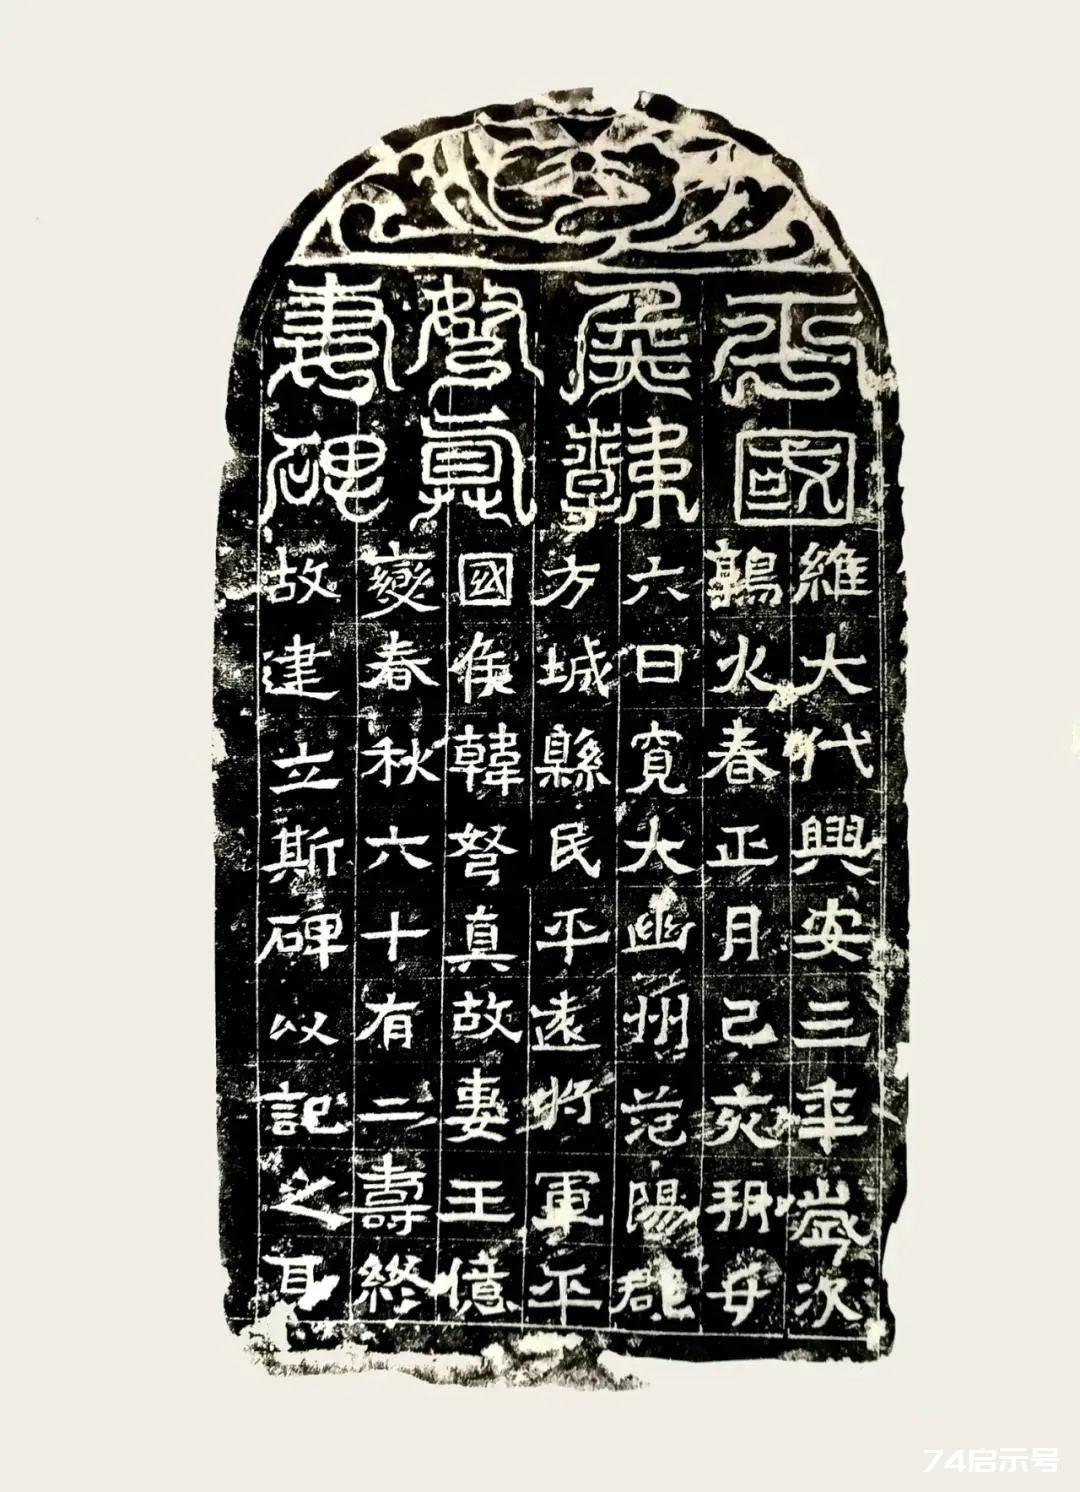 平國
侯韓
弩真
妻碑
維大代興安三年歲次
鶉火春正月己亥朔
六日寬大幽州范陽郡
方城縣民平遠將軍平
國侯韓弩真故妻王億
變春秋六十有二壽終
故建立斯碑以記之耳
74启示号